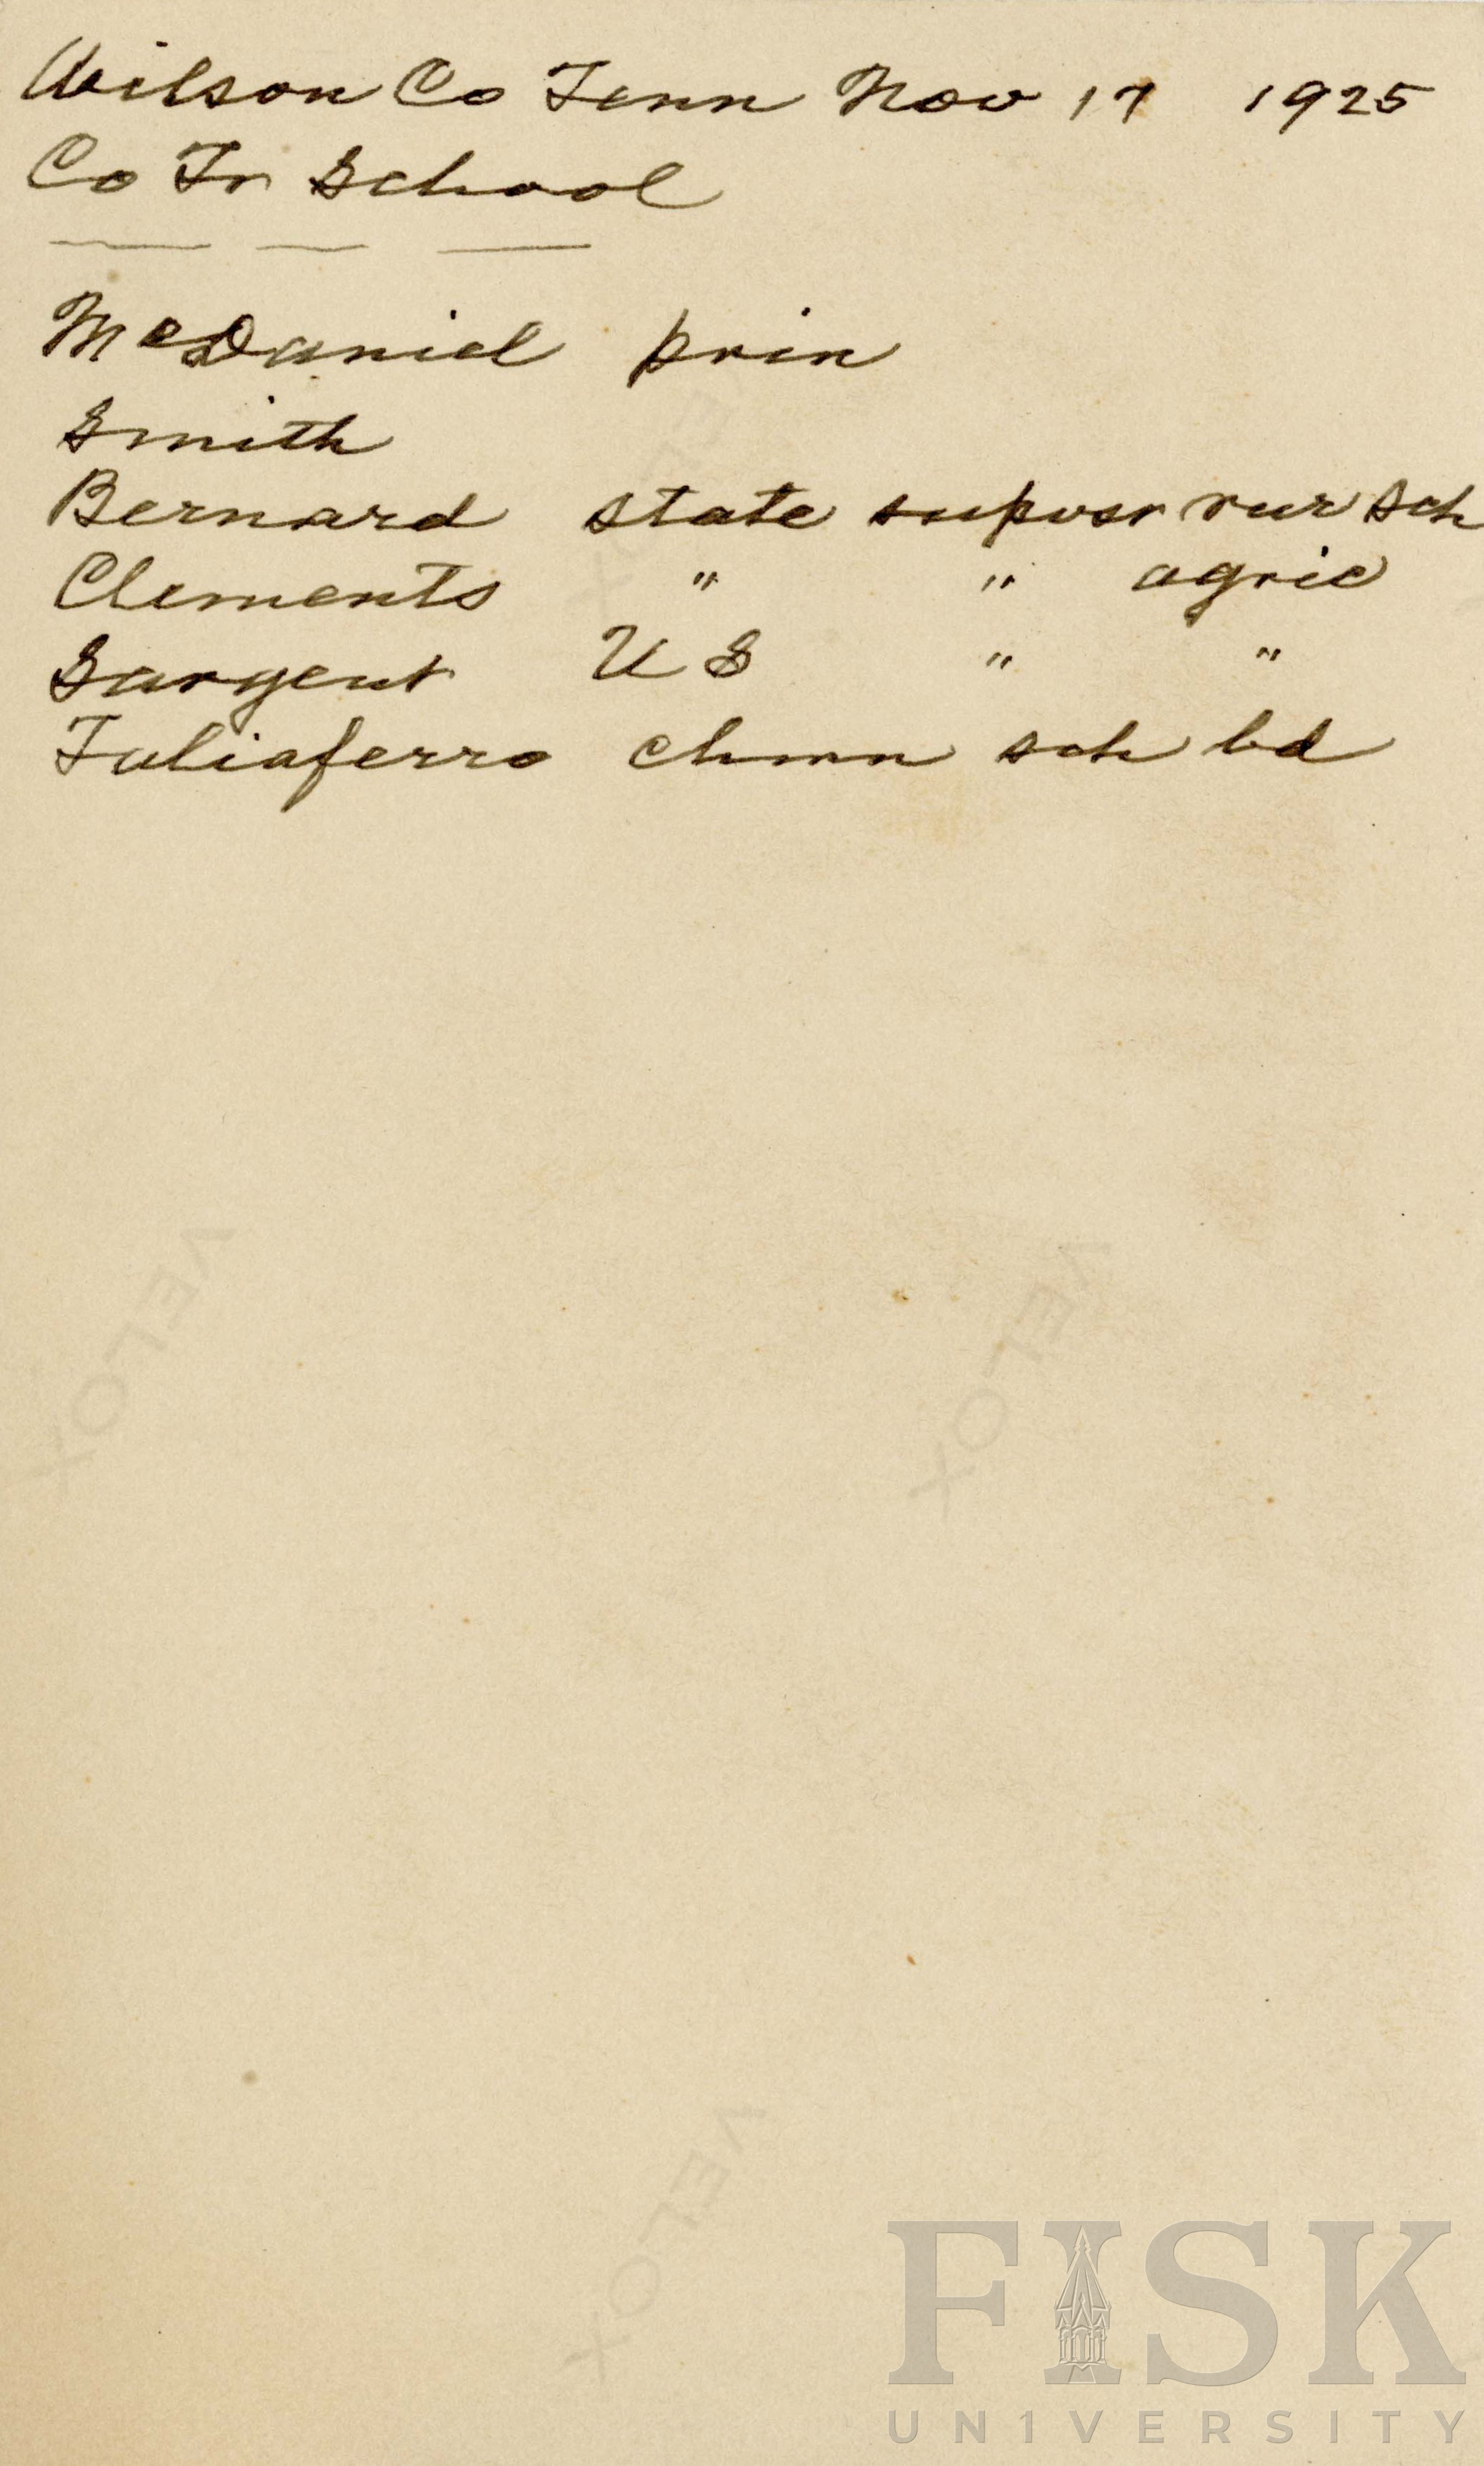 Wilson Co Tenn Nov 17 1925
Co Tr School
McDaniel prin
Smith
Bernard state supvsr rur sch
Clements " " agric
Sargent U S " "
Taliaferro chmn sch bd
VELOX
VELOX
VELOX
FISK
UN1VERSITY